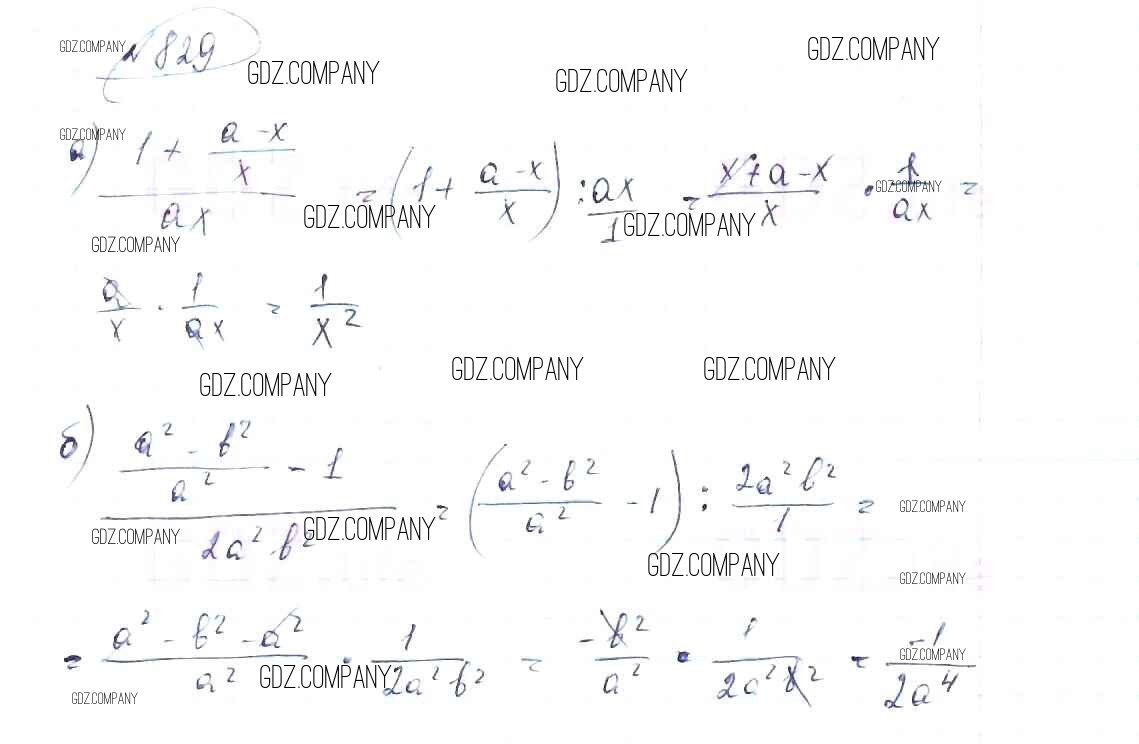 GDZ.COMPANY № 829 GDZ.COMPANY GDZ.COMPANY GDZ.COMPANY
GDZ.COMPANY
а) (1 + (a - x)/x)/(ax) = (1 + (a - x)/x) : ax/1 = (x + a - x)/x · 1/(ax) =
GDZ.COMPANY GDZ.COMPANY GDZ.COMPANY GDZ.COMPANY
a/x · 1/(ax) = 1/x²
GDZ.COMPANY GDZ.COMPANY GDZ.COMPANY
б) ((a² - b²)/a² - 1)/(2a² b²) = ((a² - b²)/a² - 1) : 2a² b²/1 =
GDZ.COMPANY GDZ.COMPANY GDZ.COMPANY
GDZ.COMPANY GDZ.COMPANY
= (a² - b² - a²)/a² · 1/(2a² b²) = -b²/a² · 1/(2a² b²) = -1/(2a⁴)
GDZ.COMPANY GDZ.COMPANY GDZ.COMPANY